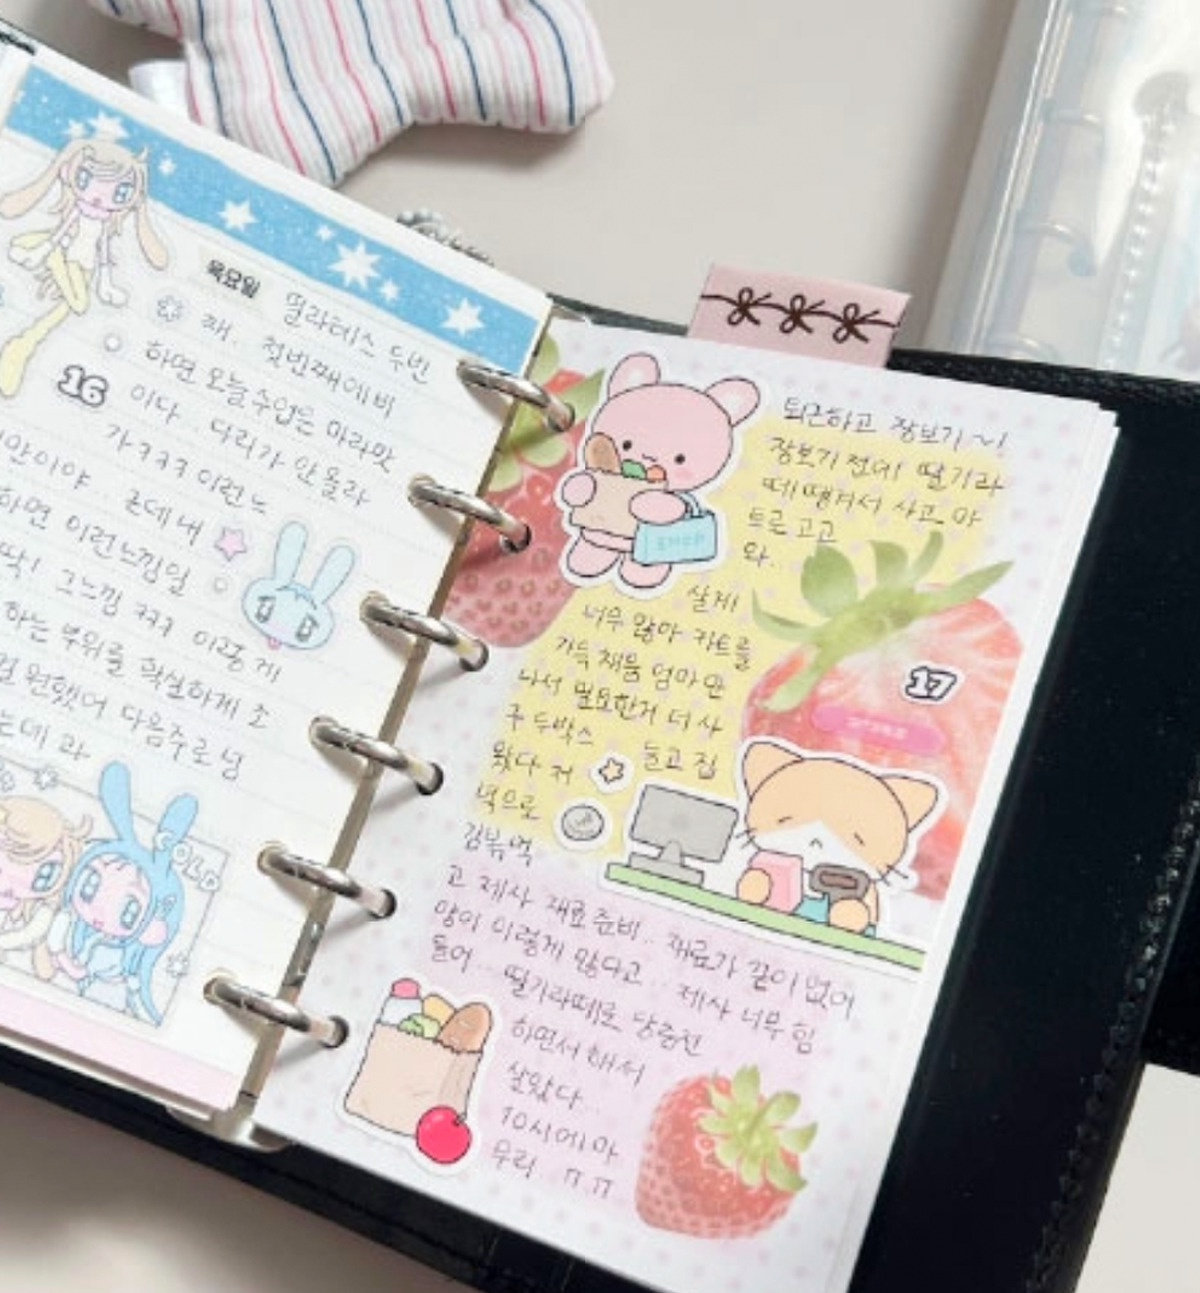 목요일 필라테스 두번
째 첫번째에비
하면 오늘수업은 마라맛
16 이다 다리가 안올라
가ㅋㅋㅋ 이런느
만이야 근데 내
하면 이런느낌일
딱! 그느낌 ㅋㅋㅋ 이렇게
하는 부위를 확실하게 소
원했어 다음주로 넘
는데 과
GOLD
퇴근하고 장보기~!
장보기 전에 딸기라
떼 땡겨서 사고 마
트로 고고
와..
살게
너무 많아 카트를
가득 채움 엄마 만
나서 필요한거 더 사
구 두박스 들고 집
왔다 저
녁으로
김볶먹
17
고 제사 재료준비.. 재료가 끝이 없어
양이 이렇게 많다고.. 제사 너무 힘
들어.. 딸기라떼로 당충전
하면서 해서
살았다..
10시에 마
무리.. ㅠㅠ